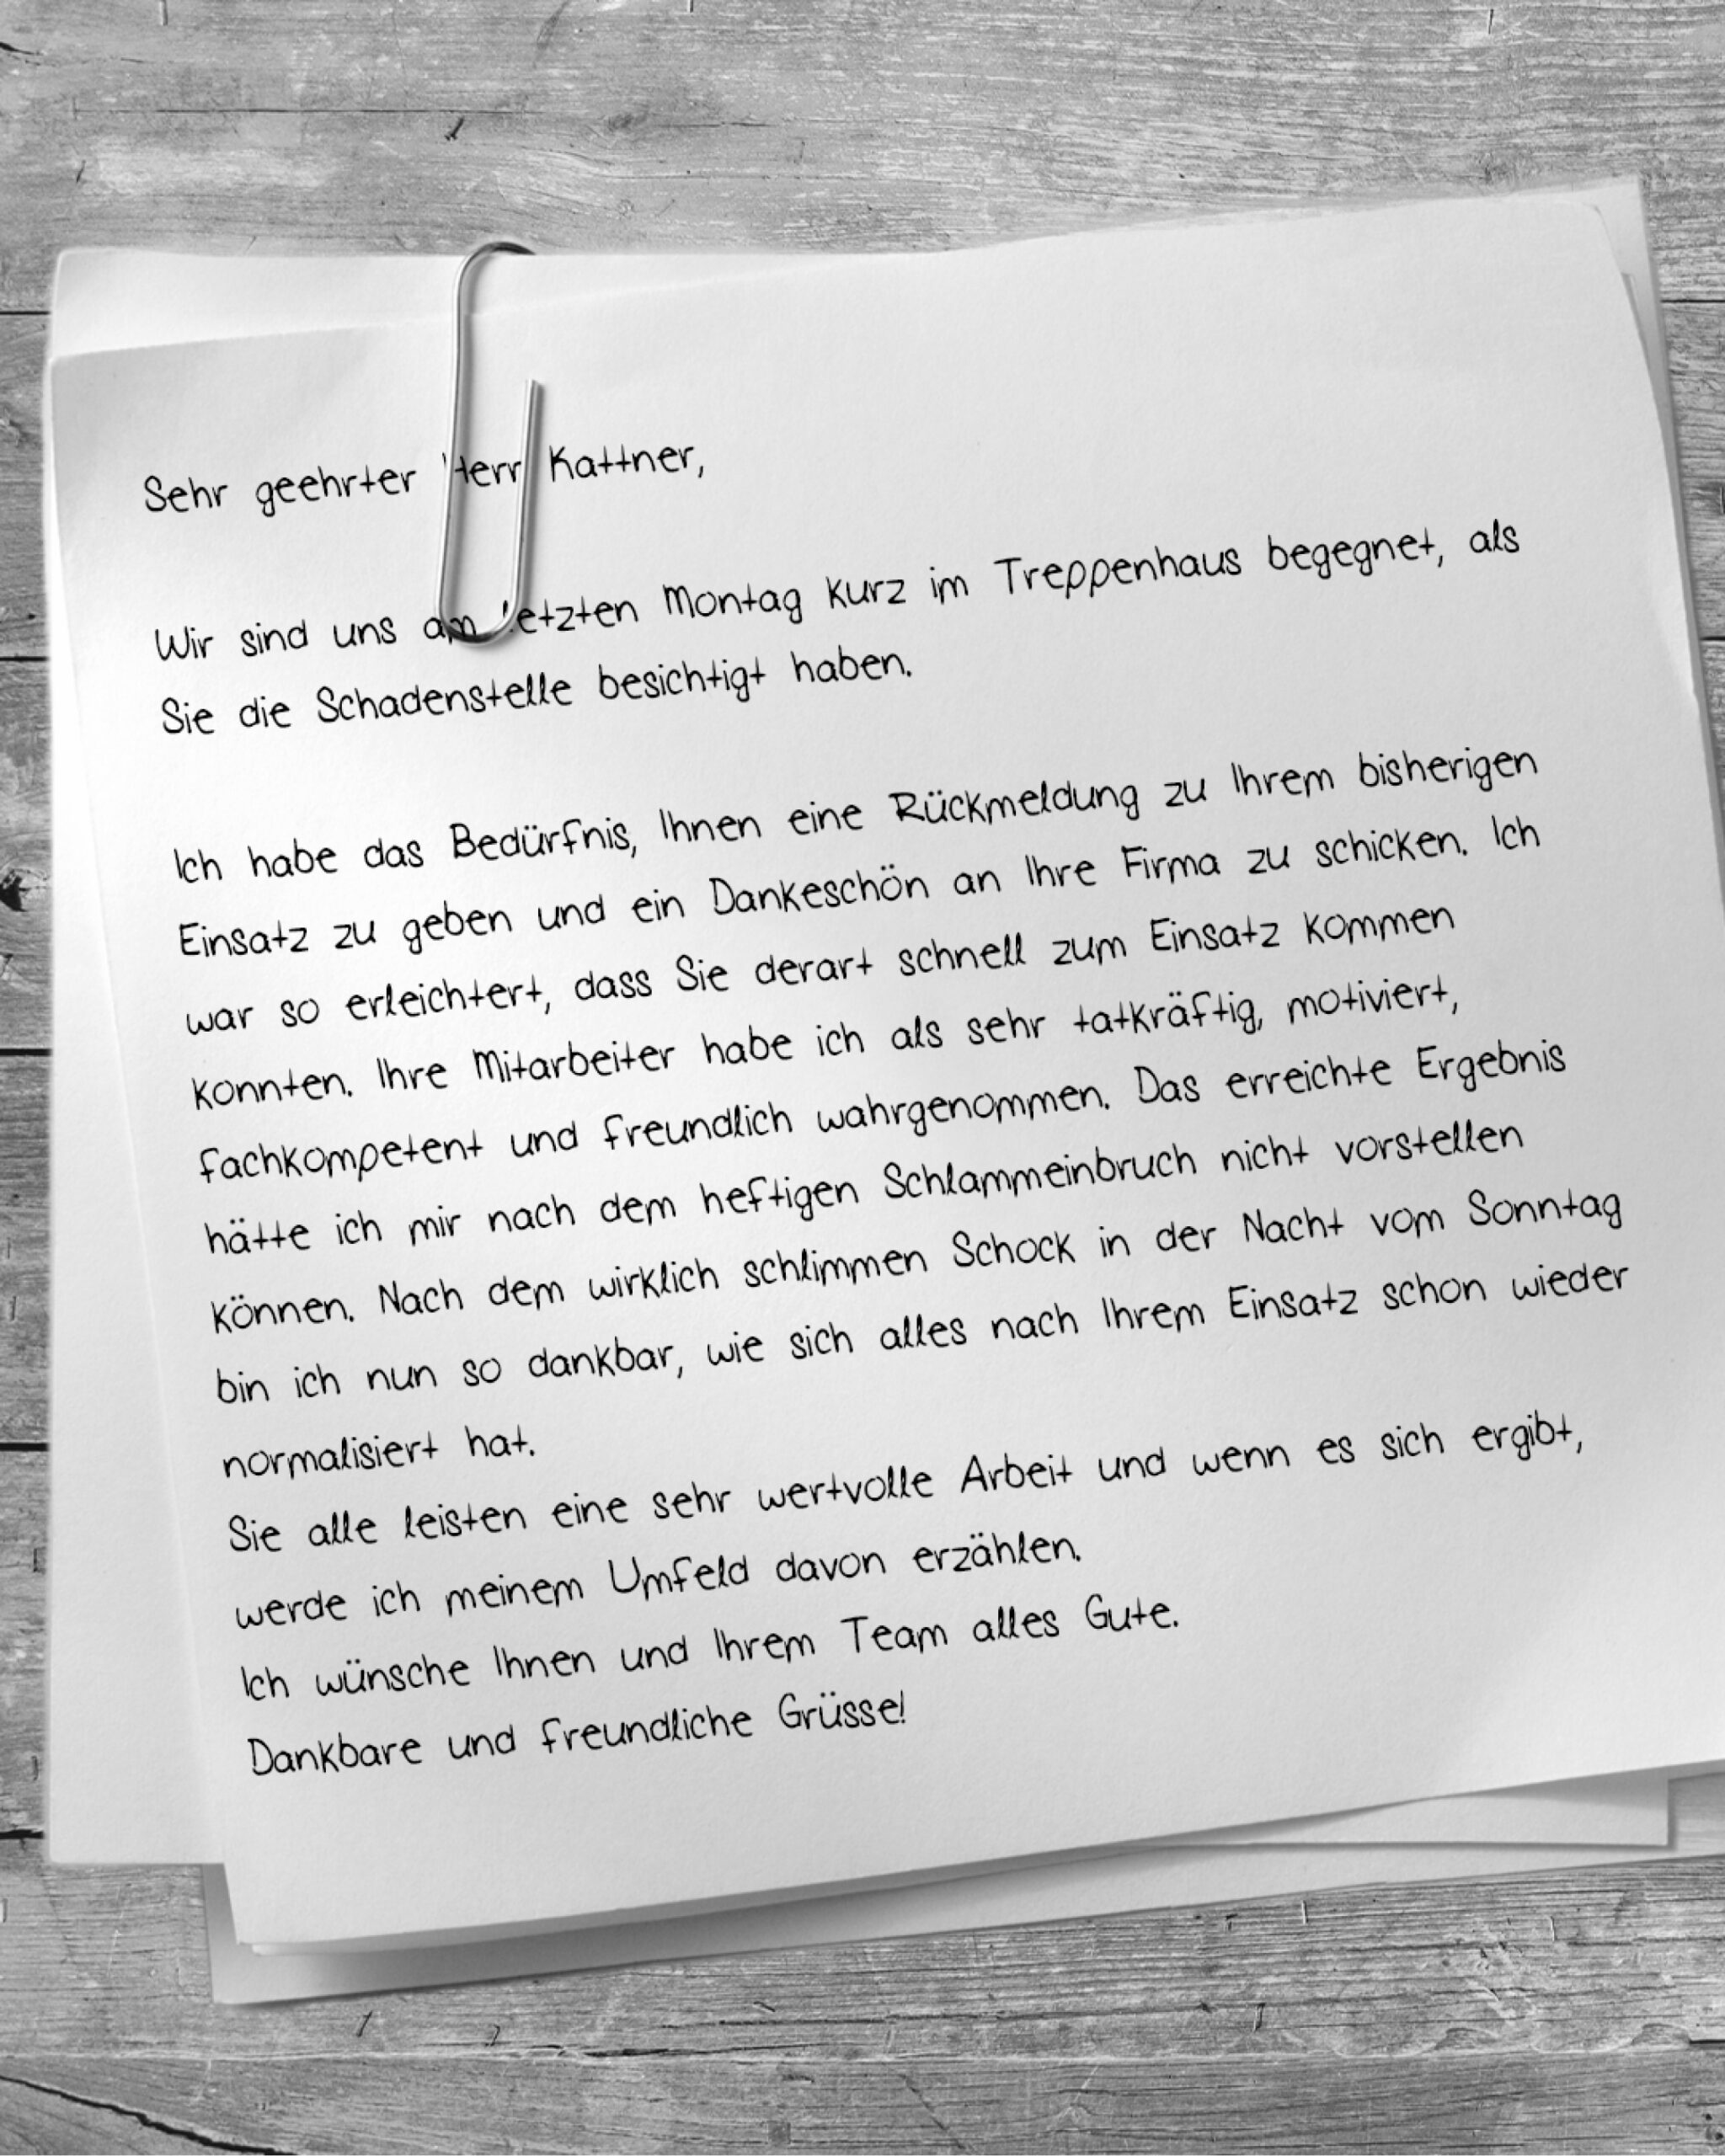 Sehr geehrter Herr Kattner,
Wir sind uns am letzten Montag kurz im Treppenhaus begegnet, als
Sie die Schadenstelle besichtigt haben.
Ich habe das Bedürfnis, Ihnen eine Rückmeldung zu Ihrem bisherigen
Einsatz zu geben und ein Dankeschön an Ihre Firma zu schicken. Ich
war so erleichtert, dass Sie derart schnell zum Einsatz kommen
konnten. Ihre Mitarbeiter habe ich als sehr tatkräftig, motiviert,
fachkompetent und freundlich wahrgenommen. Das erreichte Ergebnis
hätte ich mir nach dem heftigen Schlammeinbruch nicht vorstellen
können. Nach dem wirklich schlimmen Schock in der Nacht vom Sonntag
bin ich nun so dankbar, wie sich alles nach Ihrem Einsatz schon wieder
normalisiert hat.
Sie alle leisten eine sehr wertvolle Arbeit und wenn es sich ergibt,
werde ich meinem Umfeld davon erzählen.
Ich wünsche Ihnen und Ihrem Team alles Gute.
Dankbare und freundliche Grüsse!